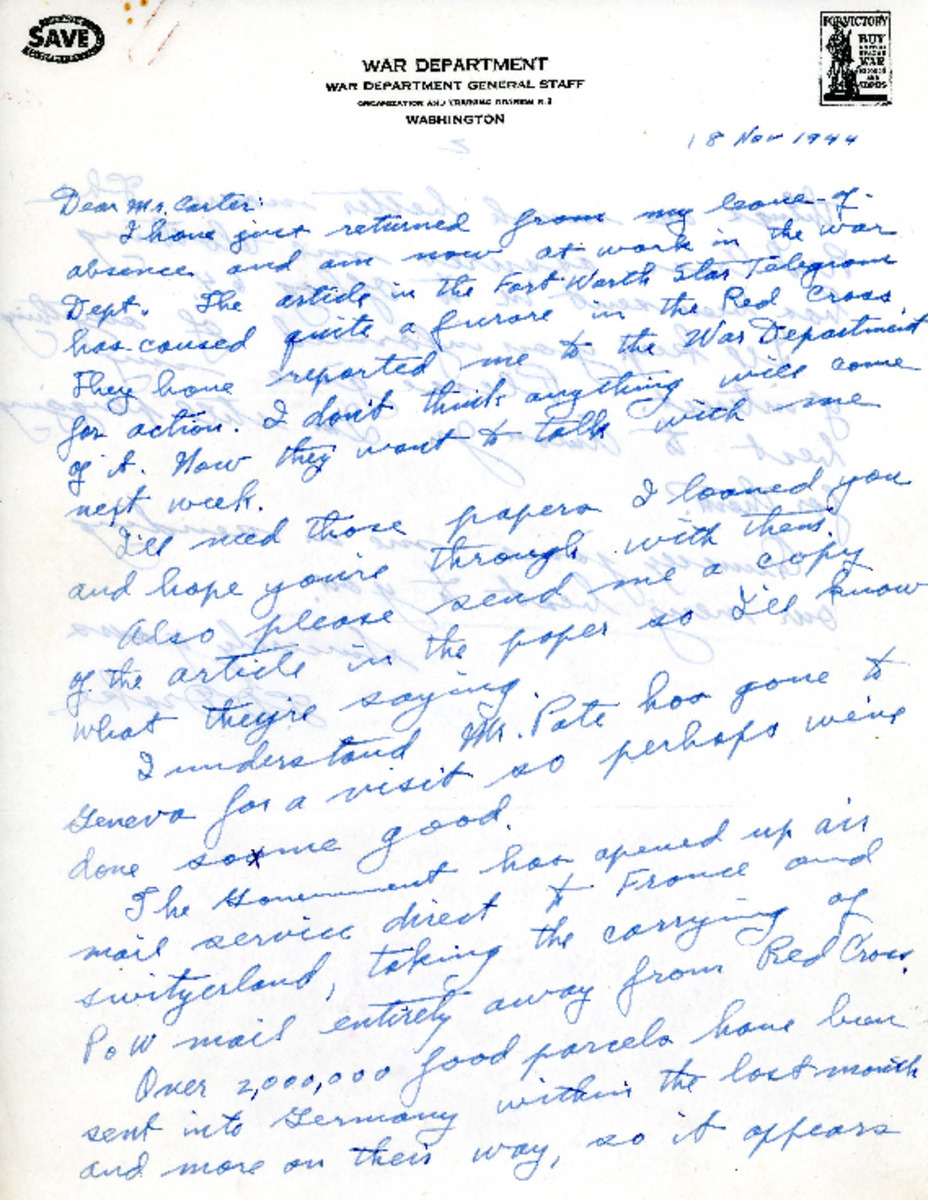 SAVE
FOR VICTORY
BUY
WAR
WAR DEPARTMENT
WAR DEPARTMENT GENERAL STAFF
ORGANIZATION AND TRAINING DIVISION G-3
WASHINGTON
18 Nov 1944
Dear Mr. Carter:
I have just returned from my leave-of-
absence and am now at work in the War
Dept. The article in the Fort Worth Star Telegram
has caused quite a furore in the Red Cross
They have reported me to the War Department
for action. I don't think anything will come
of it. Now they want to talk with me
next week.
I'll need those papers I loaned you
and hope you're through with them.
Also please send me a copy
of the article in the paper so I'll know
what they're saying.
I understand Mr. Pate has gone to
Geneva for a visit so perhaps we've
done some good.
The Government has opened up air
mail service direct to France and
Switzerland, taking the carrying of
PoW mail entirely away from Red Cross.
Over 2,000,000 food parcels have been
sent into Germany within the last month
and more on their way, so it appears